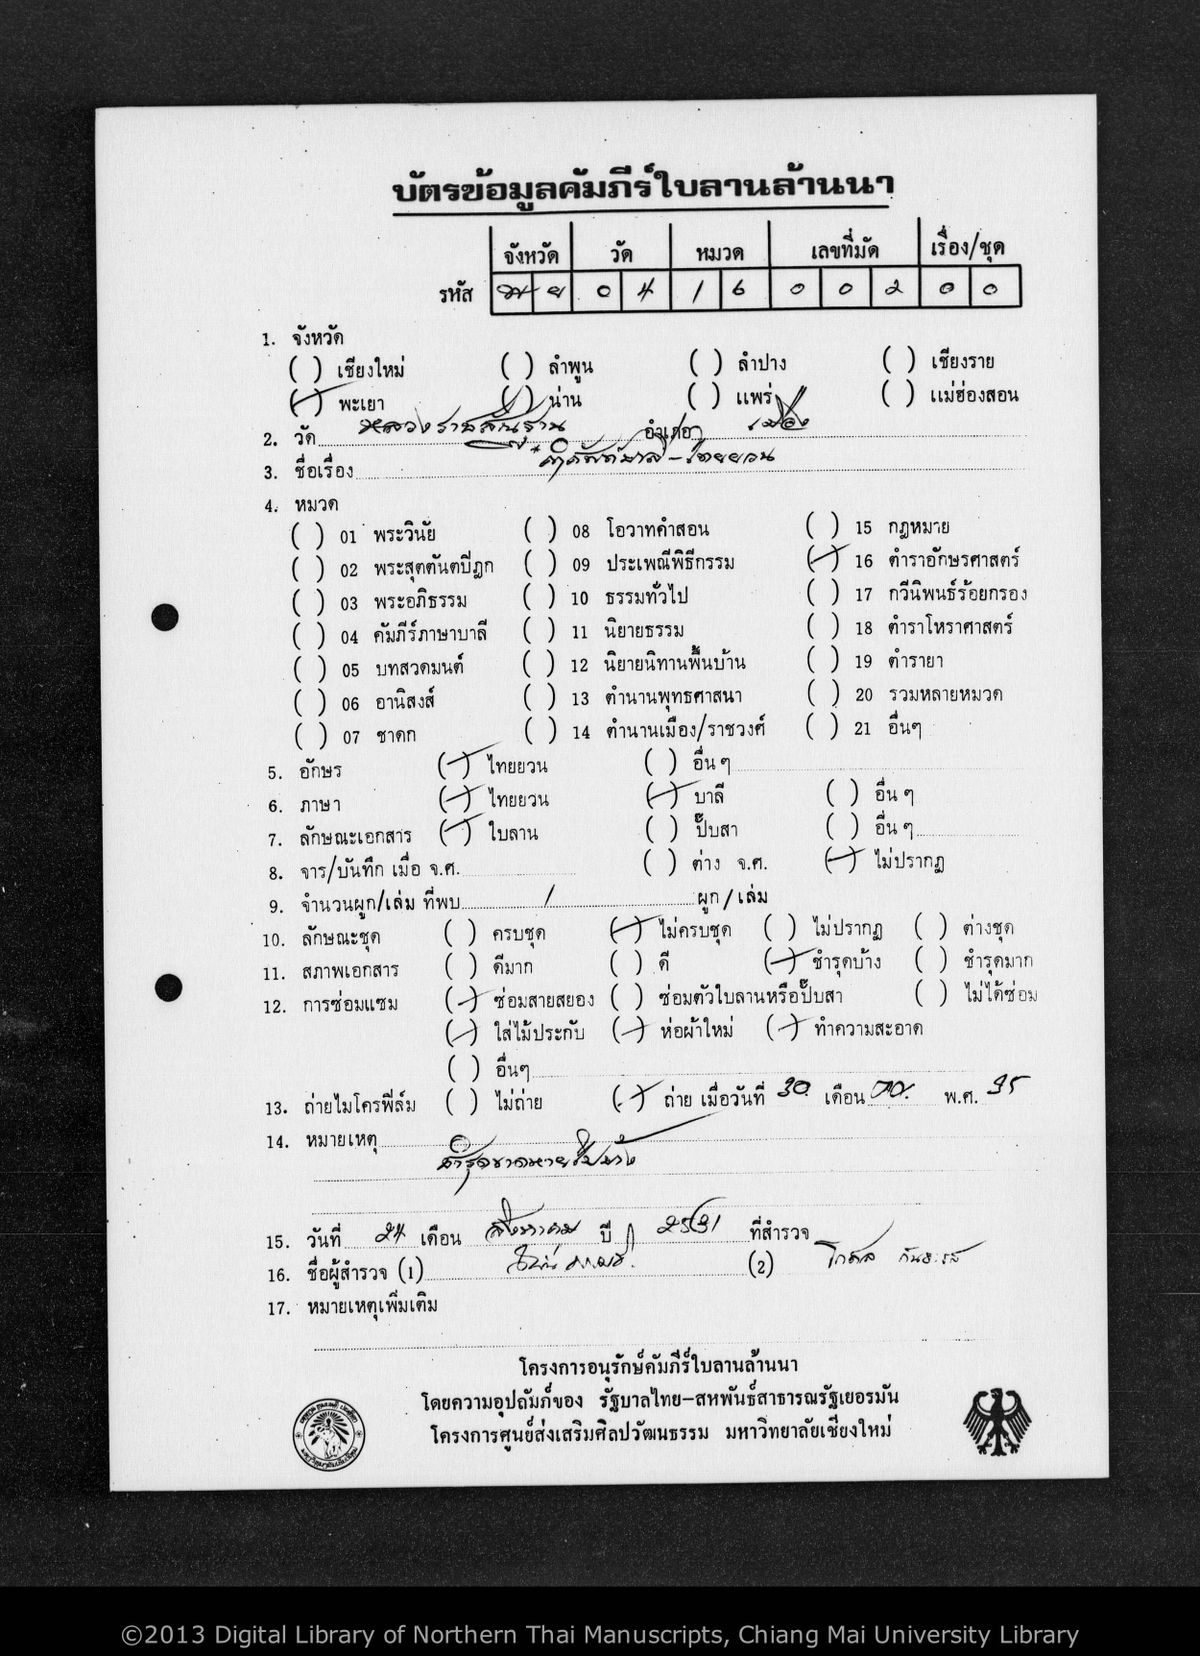 บัตรข้อมูลคัมภีร์ใบลานล้านนา
จังหวัด วัด หมวด เลขที่มัด เรื่อง/ชุด
รหัส พ ย 0 4 1 6 0 0 2 0 0
1. จังหวัด
( ) เชียงใหม่ ( ) ลำพูน ( ) ลำปาง ( ) เชียงราย
(/) พะเยา ( ) น่าน ( ) แพร่ ( ) แม่ฮ่องสอน
2. วัด หลวงราชสัณฐาน อำเภอ เมือง
3. ชื่อเรื่อง ศัพท์บาลี-ไทยยวน
4. หมวด
( ) 01 พระวินัย ( ) 08 โอวาทคำสอน ( ) 15 กฎหมาย
( ) 02 พระสุตตันตปิฎก ( ) 09 ประเพณีพิธีกรรม (/) 16 ตำราอักษรศาสตร์
( ) 03 พระอภิธรรม ( ) 10 ธรรมทั่วไป ( ) 17 กวีนิพนธ์ร้อยกรอง
( ) 04 คัมภีร์ภาษาบาลี ( ) 11 นิยายธรรม ( ) 18 ตำราโหราศาสตร์
( ) 05 บทสวดมนต์ ( ) 12 นิยายนิทานพื้นบ้าน ( ) 19 ตำรายา
( ) 06 อานิสงส์ ( ) 13 ตำนานพุทธศาสนา ( ) 20 รวมหลายหมวด
( ) 07 ชาดก ( ) 14 ตำนานเมือง/ราชวงศ์ ( ) 21 อื่นๆ
5. อักษร (/) ไทยยวน ( ) อื่น ๆ
6. ภาษา (/) ไทยยวน (/) บาลี ( ) อื่น ๆ
7. ลักษณะเอกสาร (/) ใบลาน ( ) ปั๊บสา ( ) อื่น ๆ
8. จาร/บันทึก เมื่อ จ.ศ. ( ) ต่าง จ.ศ. (/) ไม่ปรากฏ
9. จำนวนผูก/เล่ม ที่พบ 1 ผูก/เล่ม
10. ลักษณะชุด ( ) ครบชุด (/) ไม่ครบชุด ( ) ไม่ปรากฏ ( ) ต่างชุด
11. สภาพเอกสาร ( ) ดีมาก ( ) ดี (/) ชำรุดบ้าง ( ) ชำรุดมาก
12. การซ่อมแซม (/) ซ่อมสายสยอง ( ) ซ่อมตัวใบลานหรือปั๊บสา ( ) ไม่ได้ซ่อม
(/) ใส่ไม้ประกับ (/) ห่อผ้าใหม่ (/) ทำความสะอาด
( ) อื่นๆ
13. ถ่ายไมโครฟิล์ม ( ) ไม่ถ่าย (/) ถ่าย เมื่อวันที่ 30 เดือน พ.ศ. 35
14. หมายเหตุ
ชำรุดขาดหายไปบ้าง
15. วันที่ 24 เดือน สิงหาคม ปี 2531 ที่สำรวจ
16. ชื่อผู้สำรวจ (1) (2) โกศล
17. หมายเหตุเพิ่มเติม
โครงการอนุรักษ์คัมภีร์ใบลานล้านนา
โดยความอุปถัมภ์ของ รัฐบาลไทย-สหพันธ์สาธารณรัฐเยอรมัน
โครงการศูนย์ส่งเสริมศิลปวัฒนธรรม มหาวิทยาลัยเชียงใหม่
©2013 Digital Library of Northern Thai Manuscripts, Chiang Mai University Library